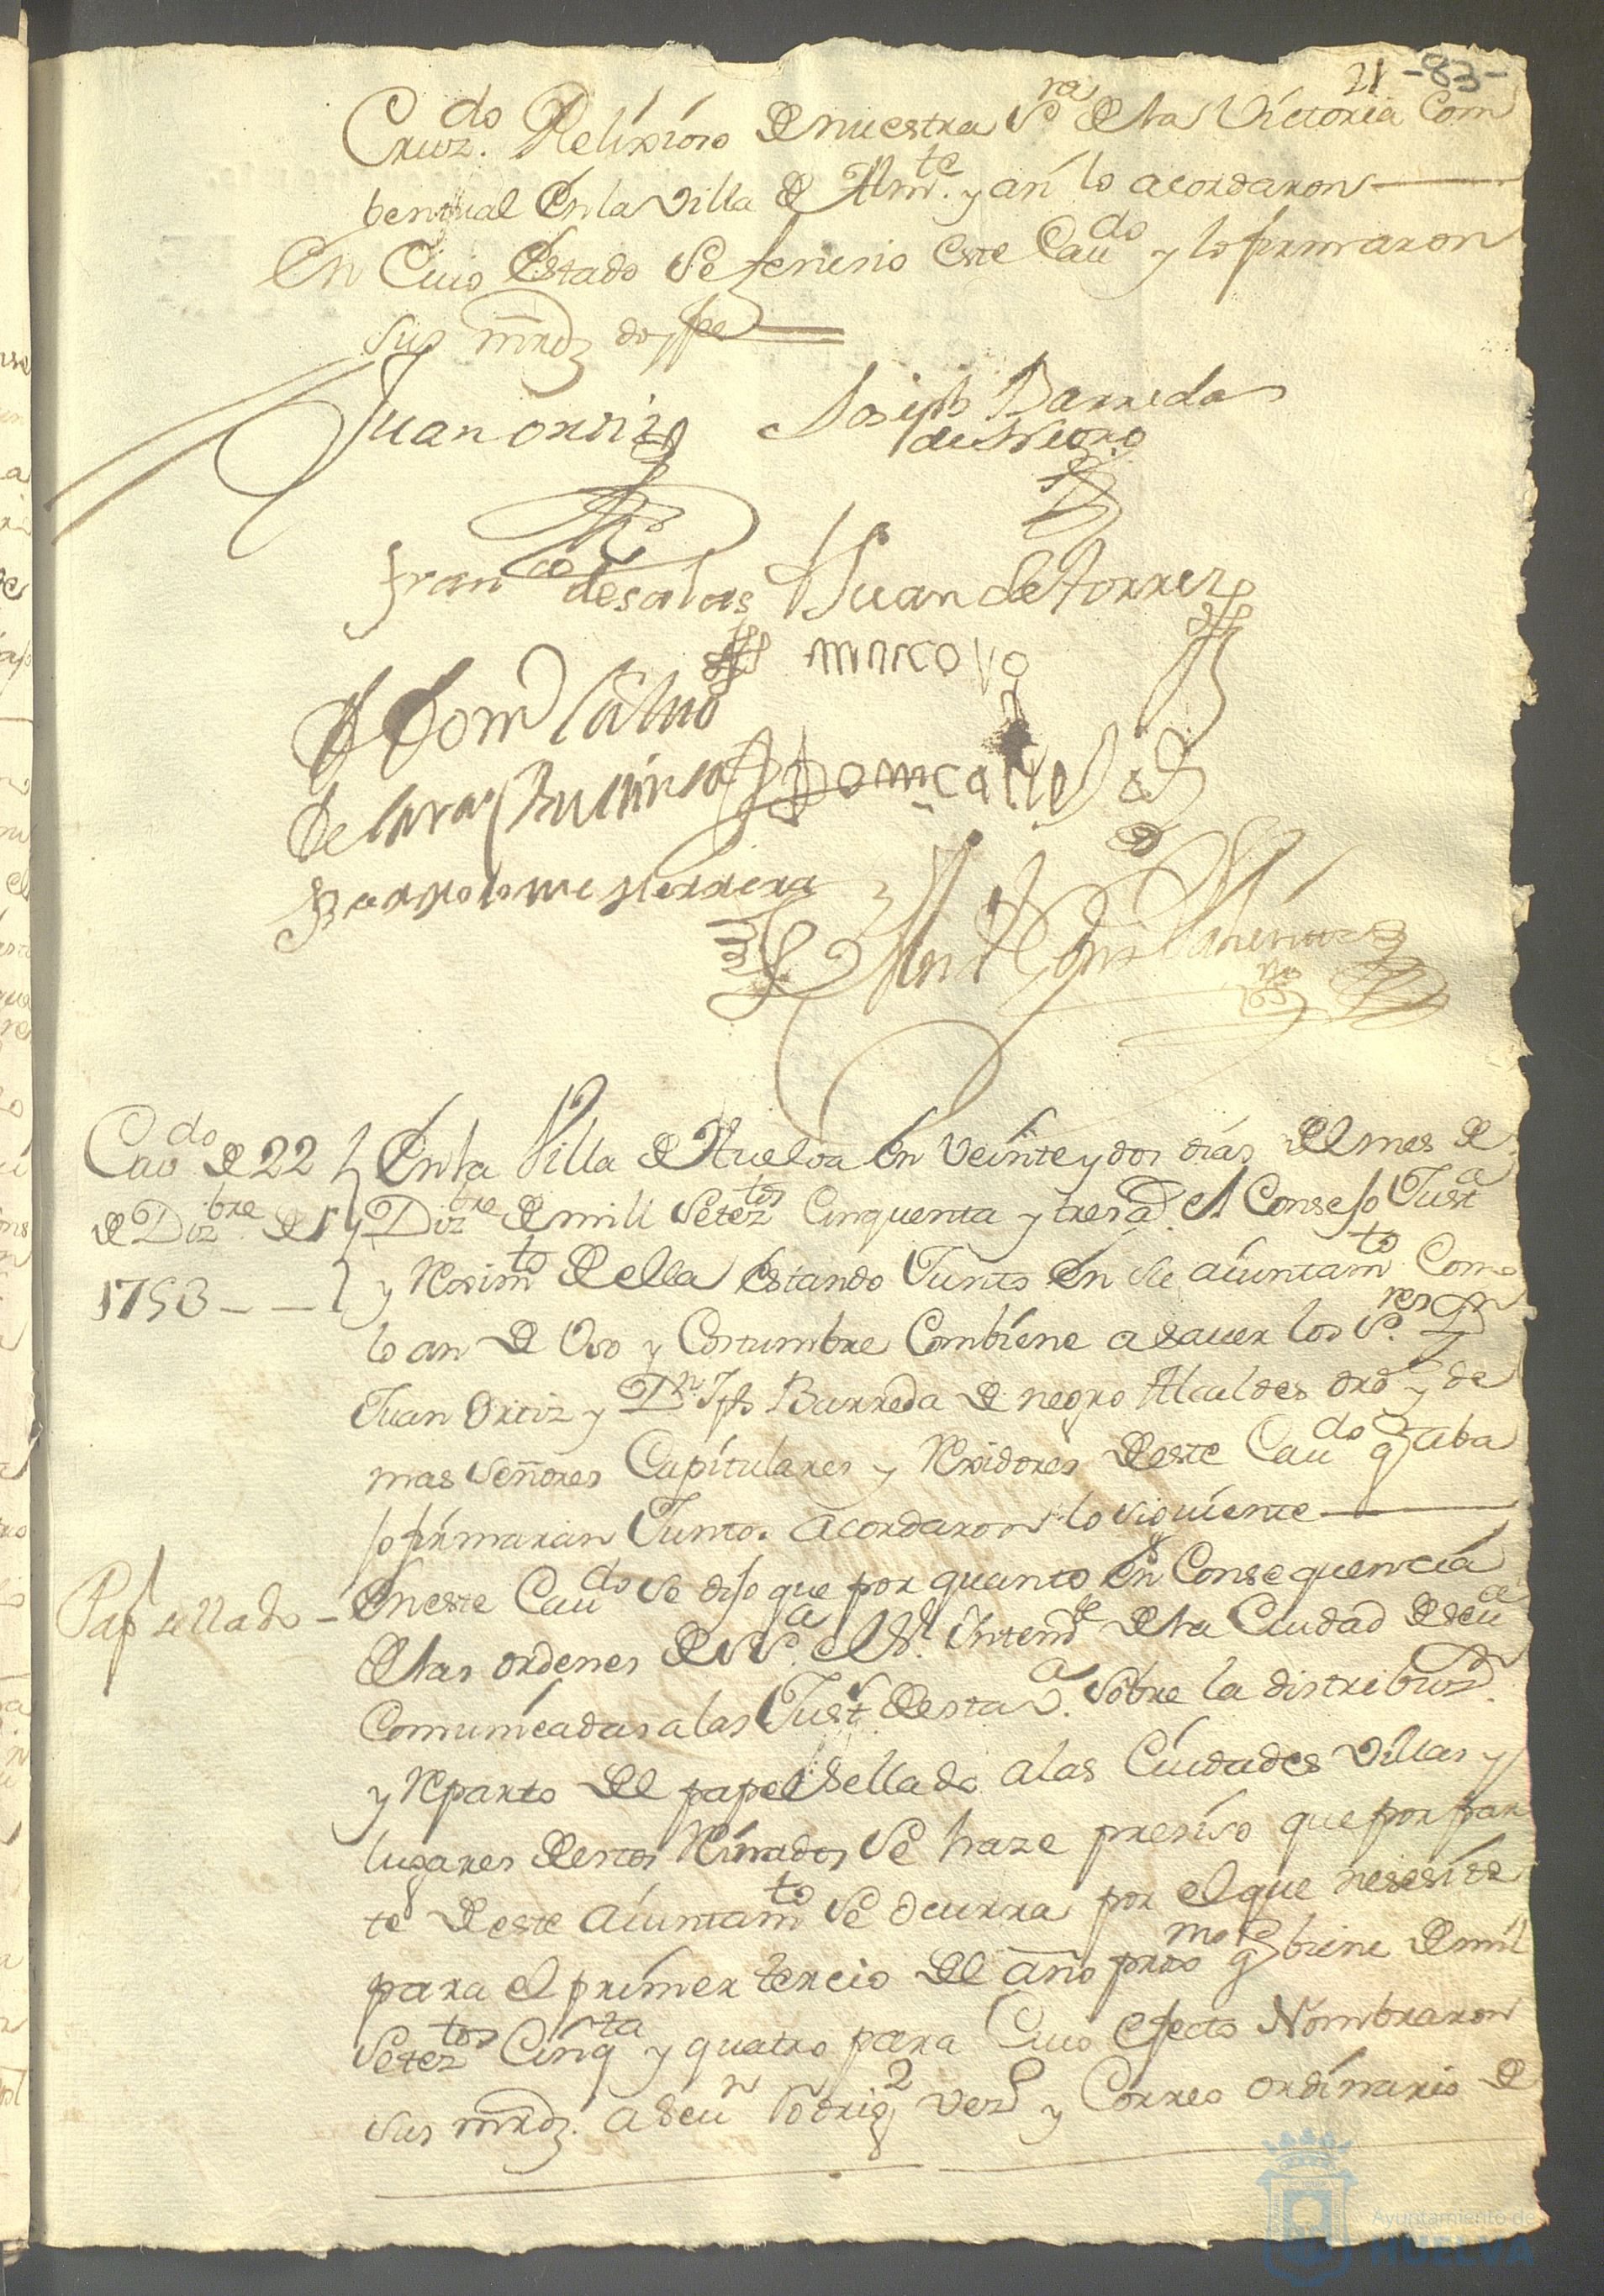 21 -83-
Cruz. Relixioso de nuestra Sra de la Victoria Com
bentual en la Villa de Almte. y asi lo acordaron
En Cuio estado se fenesio este Cavdo y lo firmaron
sus mrdz doy fee
Juan ortiz Joseph Barreda
de Negro
Franco de salas Juan de torres
Dom
de lara
Bartholome Herrera
Cavdo de 22 En la Villa de Huelva en veinte y dos dias del mes de
de Dizbre de Dizbre de mill Seteztos Cinquenta y tres ad. el Consejo Justa
1753 - - y Reximto de ella estando Junto en su aiuntamto Como
lo an de Uso y Costumbre Combiene a sauer los Sres Dn
Juan Ortiz y Dn Jph Barreda de negro Alcaldes ords y de
mas señores Capitulares y Rexidores de este Caudo q aba
jo firmaran Juntos acordaron lo siguiente
Pap sellado - En este Caudo se dijo que por quanto en Consequencia
de las ordenes de Sa. el Sr. Intendte de la Ciudad de seua
Comunicadas a las Just. de esta Va. sobre la distribuon.
y Reparto del papel Sellado a las Ciudades Villas y
lugares de estos Reinados se haze presiso que por par
te de este aiuntamto se ocurra por el que nesesite
para el primer tercio del año proxmo q biene de mil
Seteztos Cinqta y quatro para Cuio efecto Nombraron
sus mrdz. a Seun Rodrigz vezo y Correo ordinario de
Ayuntamiento de
HUELVA